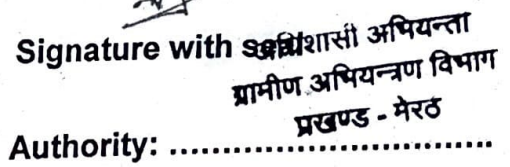 Signature with seal अधिशासी अभियन्ता
ग्रामीण अभियन्त्रण विभाग
प्रखण्ड - मेरठ
Authority: ..............................